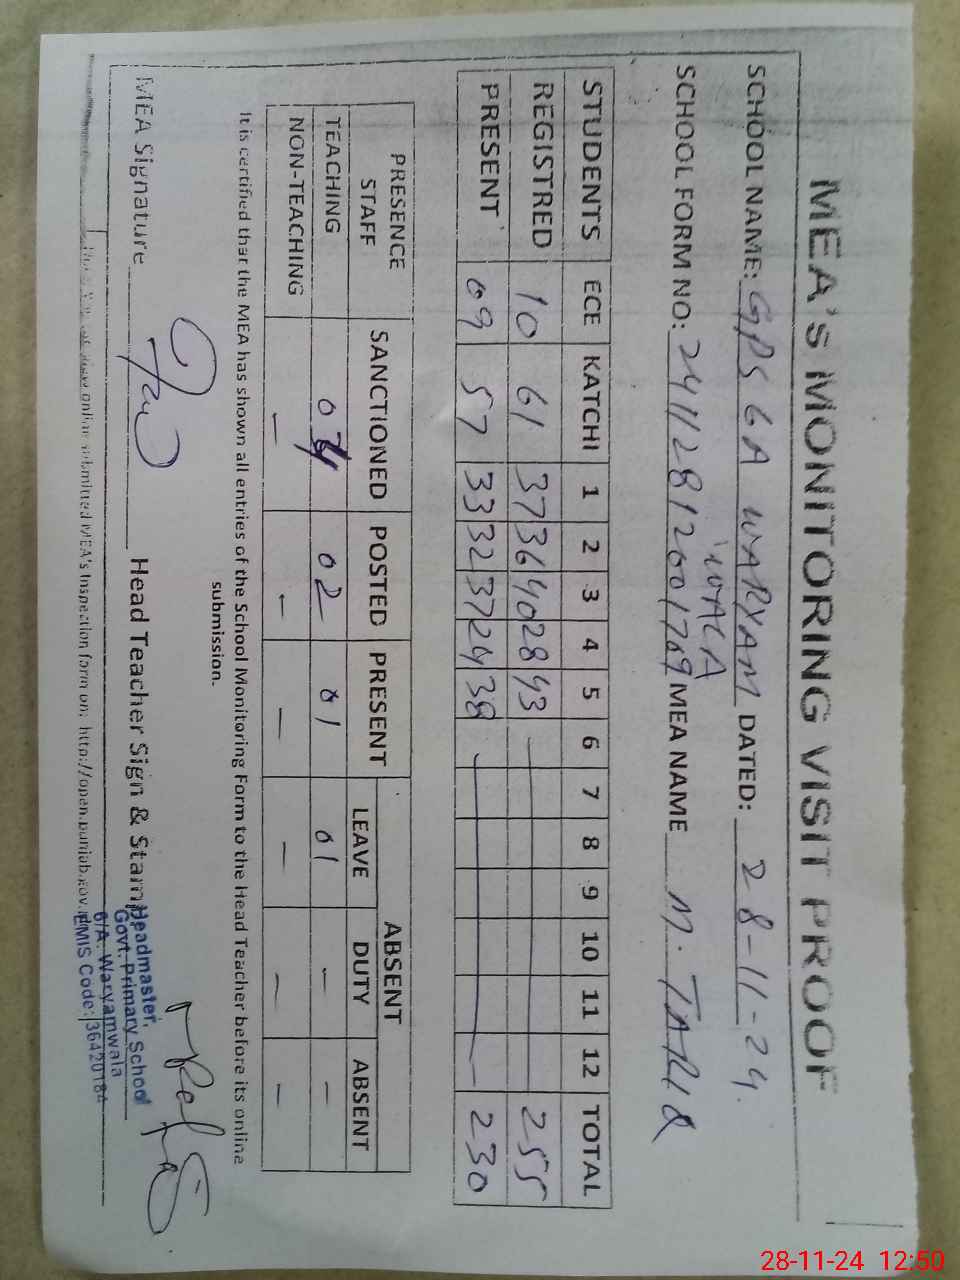 MEA'S MONITORING VISIT PROOF
SCHOOL NAME: GPS 6A WARYAM WALA DATED: 28-11-24.
SCHOOL FORM NO: MEA NAME M. TARIQ
STUDENTS ECE KATCHI 1 2 3 4 5 6 7 8 9 10 11 12 TOTAL
REGISTRED 10 61 37 36 40 28 43 — 255
PRESENT 09 57 33 32 37 24 38 — 230
PRESENCE SANCTIONED POSTED PRESENT ABSENT
STAFF LEAVE DUTY ABSENT
TEACHING 02 01 01 — —
NON-TEACHING — — — — — —
It is certified that the MEA has shown all entries of the School Monitoring Form to the Head Teacher before its online
submission.
MEA Signature Head Teacher Sign & Stamp
Headmaster,
Govt. Primary School
6/A. Waryamwala
EMIS Code: 36420184
online submitted MEA's Inspection form on: http://open.punjab.gov.
28-11-24 12:50